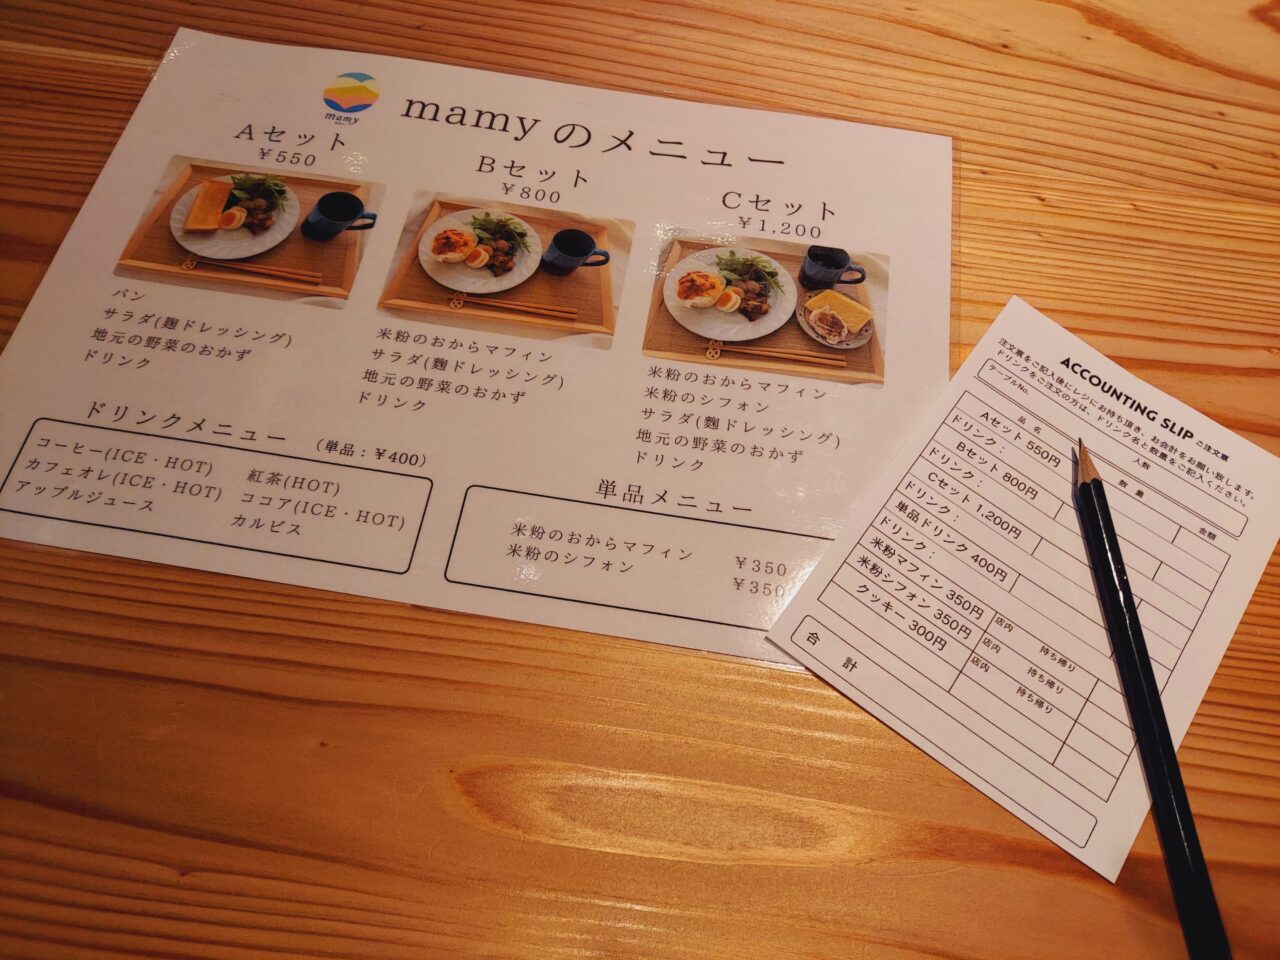 mamy
mamyのメニュー
Aセット
￥550
パン
サラダ(麹ドレッシング)
地元の野菜のおかず
ドリンク
Bセット
￥800
米粉のおからマフィン
サラダ(麹ドレッシング)
地元の野菜のおかず
ドリンク
Cセット
￥1,200
米粉のおからマフィン
米粉のシフォン
サラダ(麹ドレッシング)
地元の野菜のおかず
ドリンク
ドリンクメニュー (単品：￥400)
コーヒー(ICE・HOT) 紅茶(HOT)
カフェオレ(ICE・HOT) ココア(ICE・HOT)
アップルジュース カルピス
単品メニュー
米粉のおからマフィン ￥350
米粉のシフォン ￥350
ACCOUNTING SLIP ご注文票
注文票をご記入後にレジにお持ち頂き、お会計をお願い致します。
ドリンクをご注文の方は、ドリンク名と数量をご記入ください。
テーブルNo. 人数
品名 数量 金額
Aセット 550円
ドリンク：
Bセット 800円
ドリンク：
Cセット 1,200円
ドリンク：
単品ドリンク 400円
ドリンク：
米粉マフィン 350円 店内 持ち帰り
米粉シフォン 350円 店内 持ち帰り
クッキー 300円 店内 持ち帰り
合計